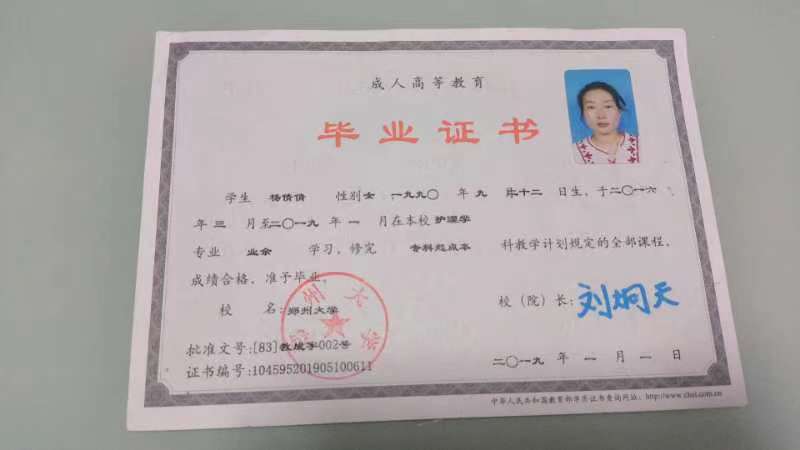 成人高等教育
毕业证书
学生 杨倩倩 性别女 一九九〇 年九 月二十二 日生，于二〇一六
年三 月至二〇一九 年一 月在本校 护理学
专业 业余 学习，修完 专科起点本 科教学计划规定的全部课程，
成绩合格，准予毕业。
校 名：郑州大学
校（院）长：刘炯天
批准文号：[83]教成字002号
证书编号：104595201905100611
二〇一九 年 一 月 一 日
中华人民共和国教育部学历证书查询网址：http://www.chsi.com.cn
郑州大学